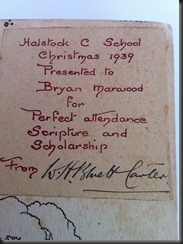 Halstock C School
Christmas 1939
Presented to
Bryan Marwood
for
Perfect attendance
Scripture and
Scholarship
From W H Blwett Carter